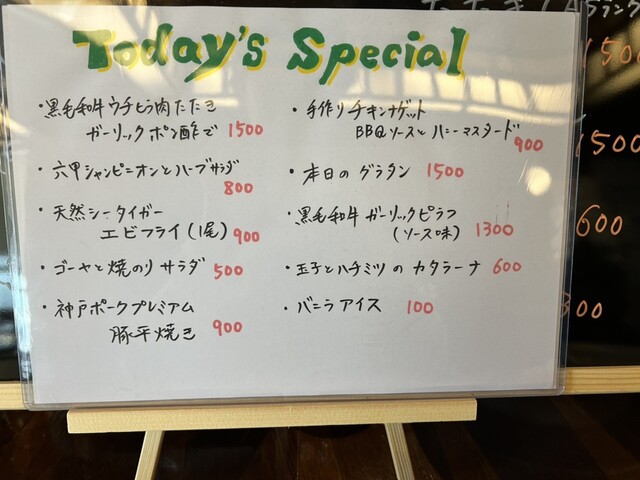 Today's Special
・黒毛和牛ウチヒラ肉たたき
ガーリックポン酢で 1500
・六甲シャンピニオンとハーブサラダ
800
・天然シータイガー
エビフライ(1尾) 900
・ゴーヤと焼のりサラダ 500
・神戸ポークプレミアム
豚平焼き 900
・手作りチキンナゲット
BBQソースとハニーマスタード
900
・本日のグラタン 1500
・黒毛和牛ガーリックピラフ
(ソース味) 1300
・玉子とハチミツのカタラーナ 600
・バニラアイス 100
1500
1500
600